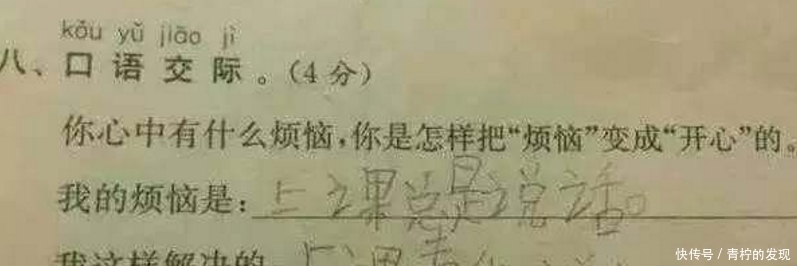 kǒu yǔ jiāo jì
八、口语交际。（4分）
你心中有什么烦恼，你是怎样把“烦恼”变成“开心”的。
我的烦恼是：上课总是说话。
我这样解决的
快传号 / 青柠的发现